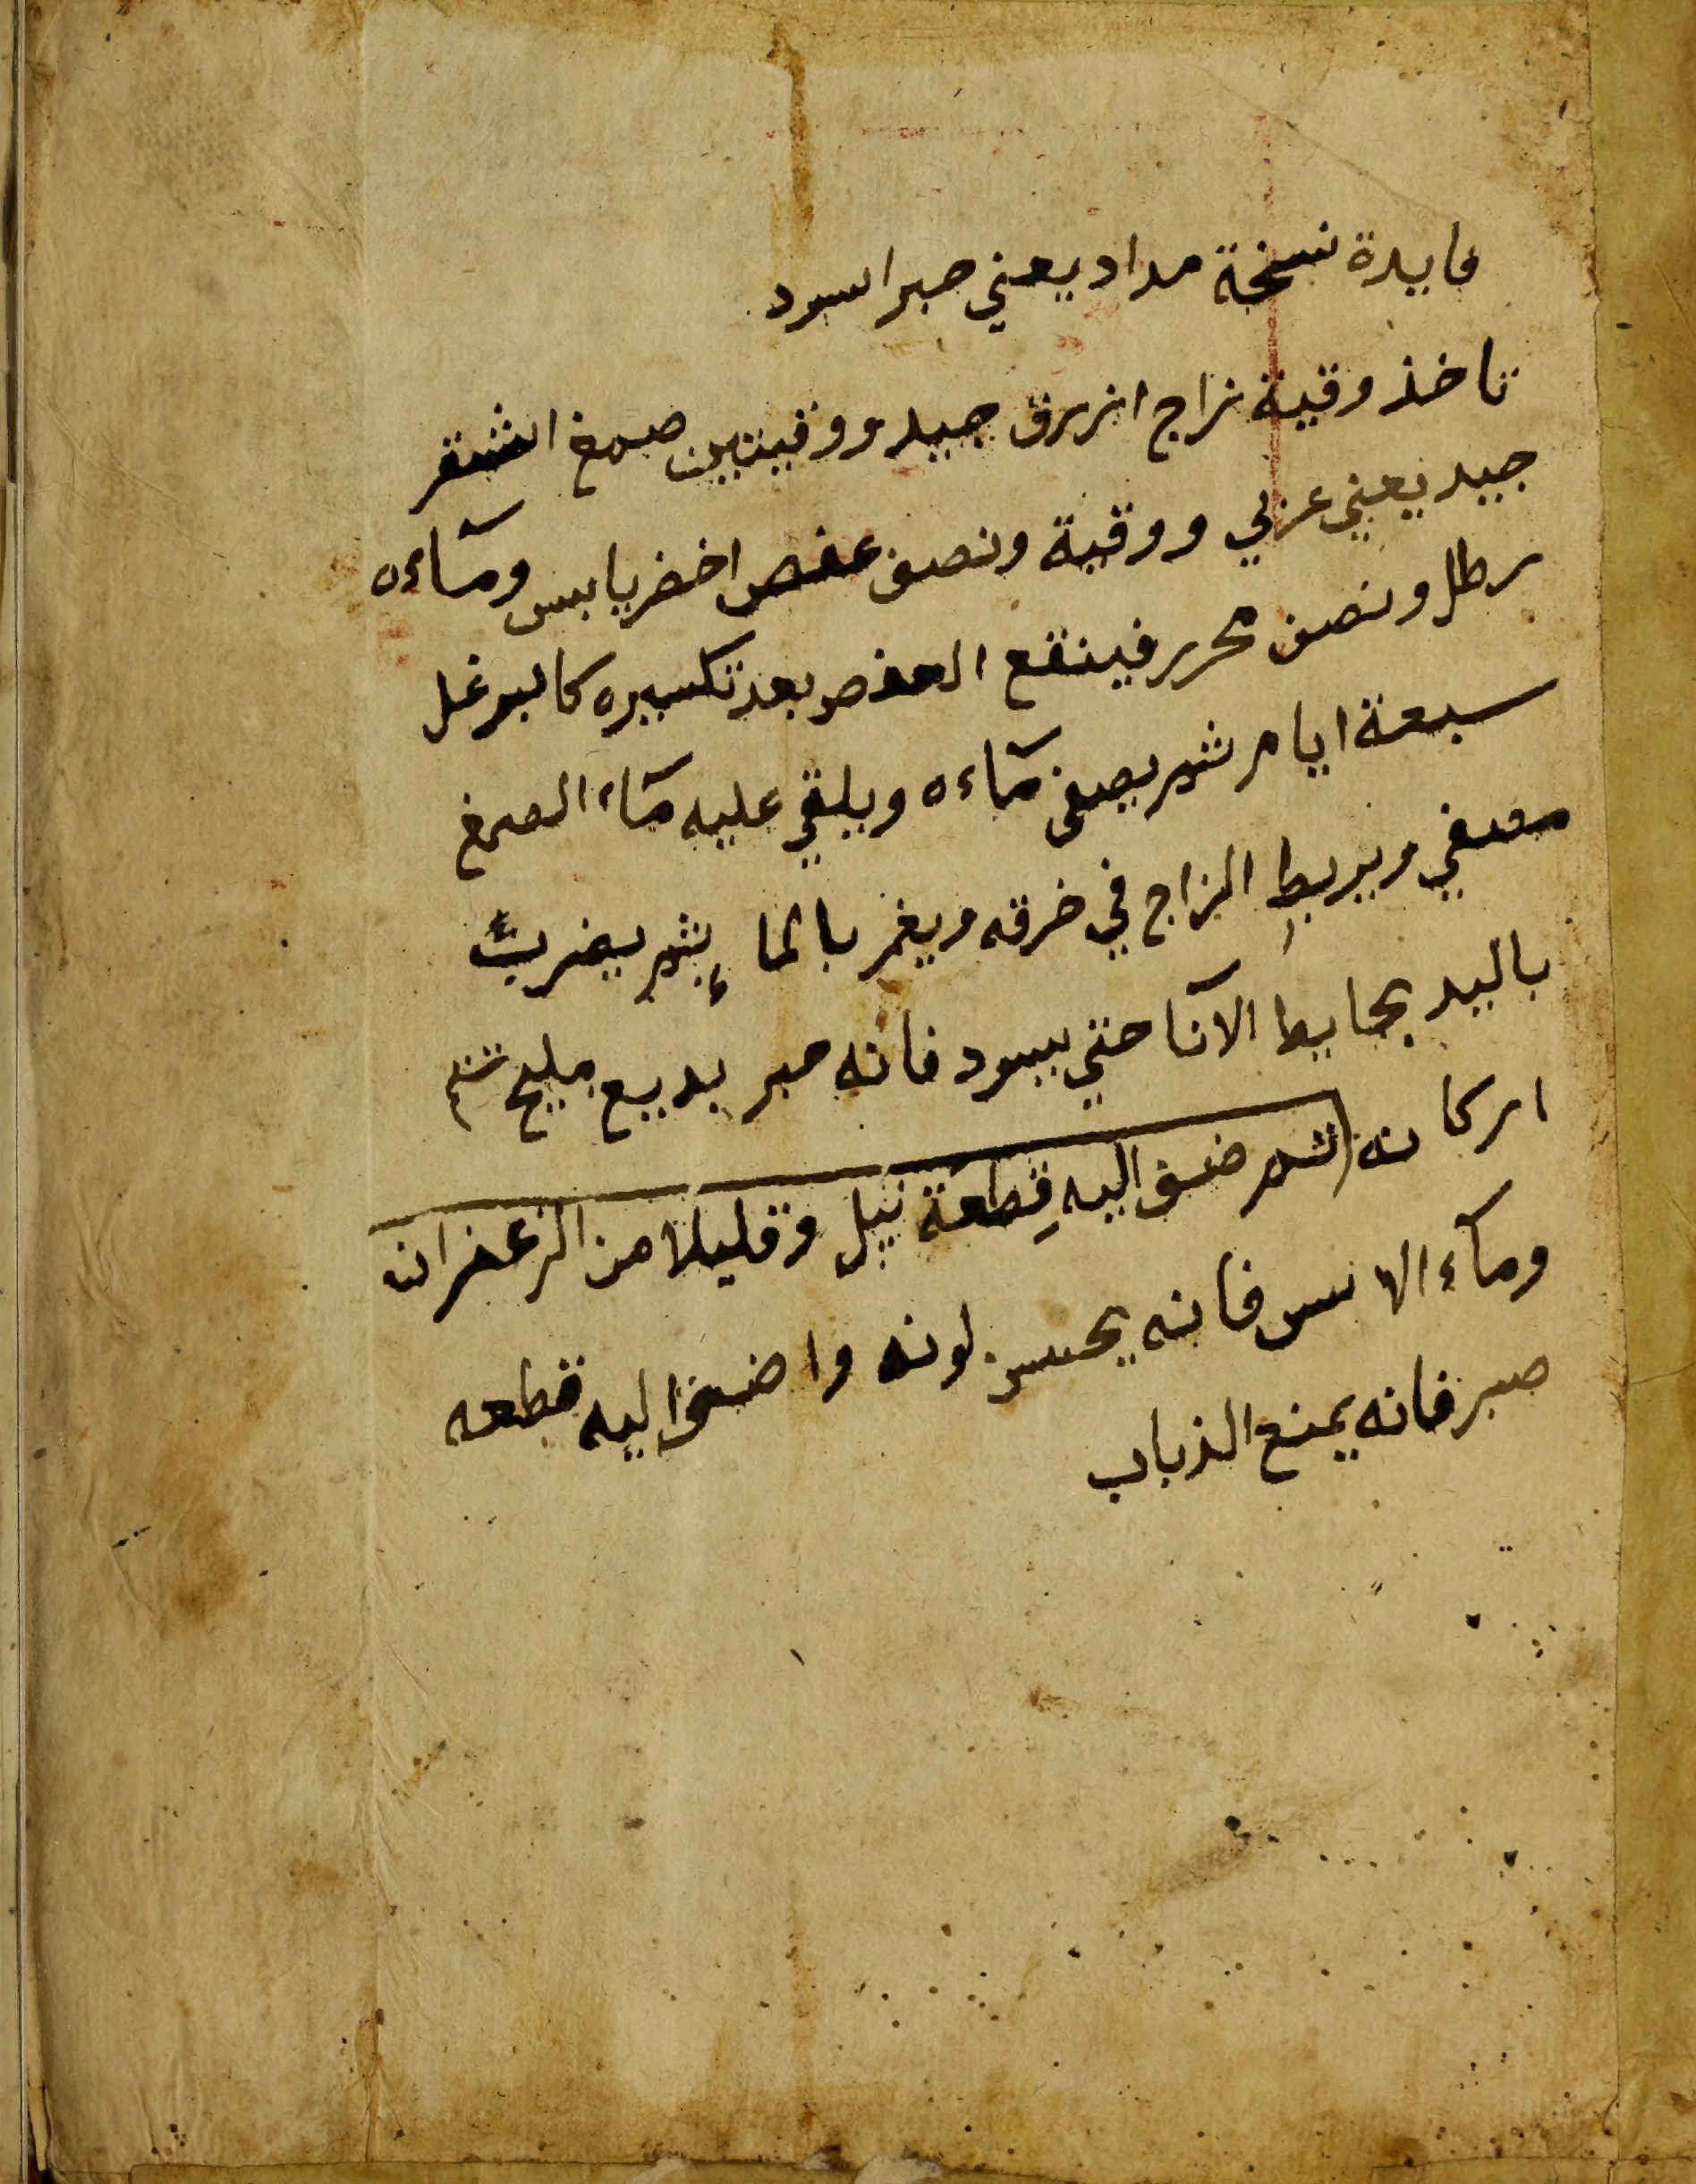 فايدة نسخة مداد يعني حبر اسود
تاخذ وقية زاج ازرق جيد ووقيتين صمغ اشقر
جيد يعني عربي ووقية ونصف عفص اخضر يابس ومآءه
رطل ونصف محرر فينقع العفص بعد تكسيره كالبرغل
سبعة ايام ثم يصفى مآءه ويلقي عليه مآء الصمغ
مصفي ويربط الزاج في خرقه ويغمر بالماء ثم يضرب
باليد بحايط الآنا حتي يسود فانه حبر بديع مليح تتم
اركانه ثم ضف اليه قطعة نيل وقليلا من الزعفران
ومآء الاس فانه يحسن لونه واضف اليه قطعه
صبر فانه يمنع الذباب